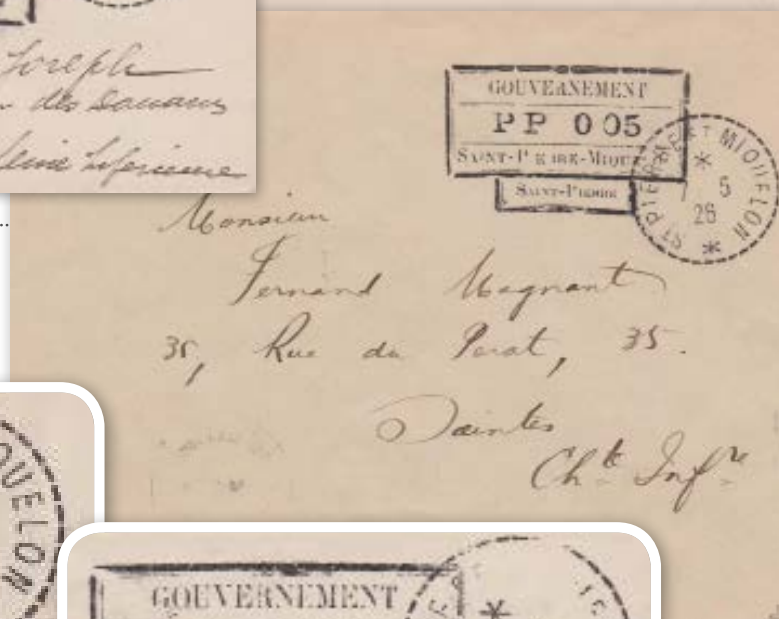 Joseph
des Douanes
GOUVERNEMENT
PP 0 05
SAINT-PIERRE-MIQU
SAINT-PIERRE
ST PIERRE ET MIQUELON
5
26
Monsieur
Fernand Magnant
35, Rue du Perat, 35.
Saintes
Chte Infre
QUELON
GOUVERNEMENT